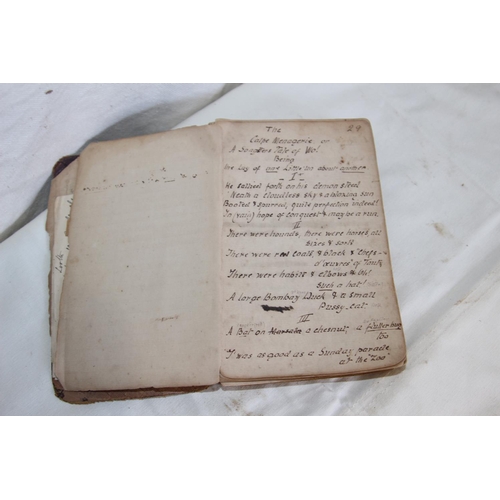 The 29
Calpe Menagerie or
A Sampters Tale of Wo!
Being
the Lay of our Lotty on about
I
He sallied forth on his demon steed
'Neath a cloudless sky & a blazing sun
Booted & Spurred, quite perfection indeed!
In (vain) hope of conquest & may be a run
II
There were hounds, there were horses, all
sizes & sorts
There were red coats, & black & "chefs-
d'œuvres" of Tents
There were habits & elbows & Oh!
Such a hat!
A large Bombay Duck & a small
Pussy-cat
III
A Bat on a chesnut, a
too
'Twas as good as a Sunday parade
at the "Zoo"